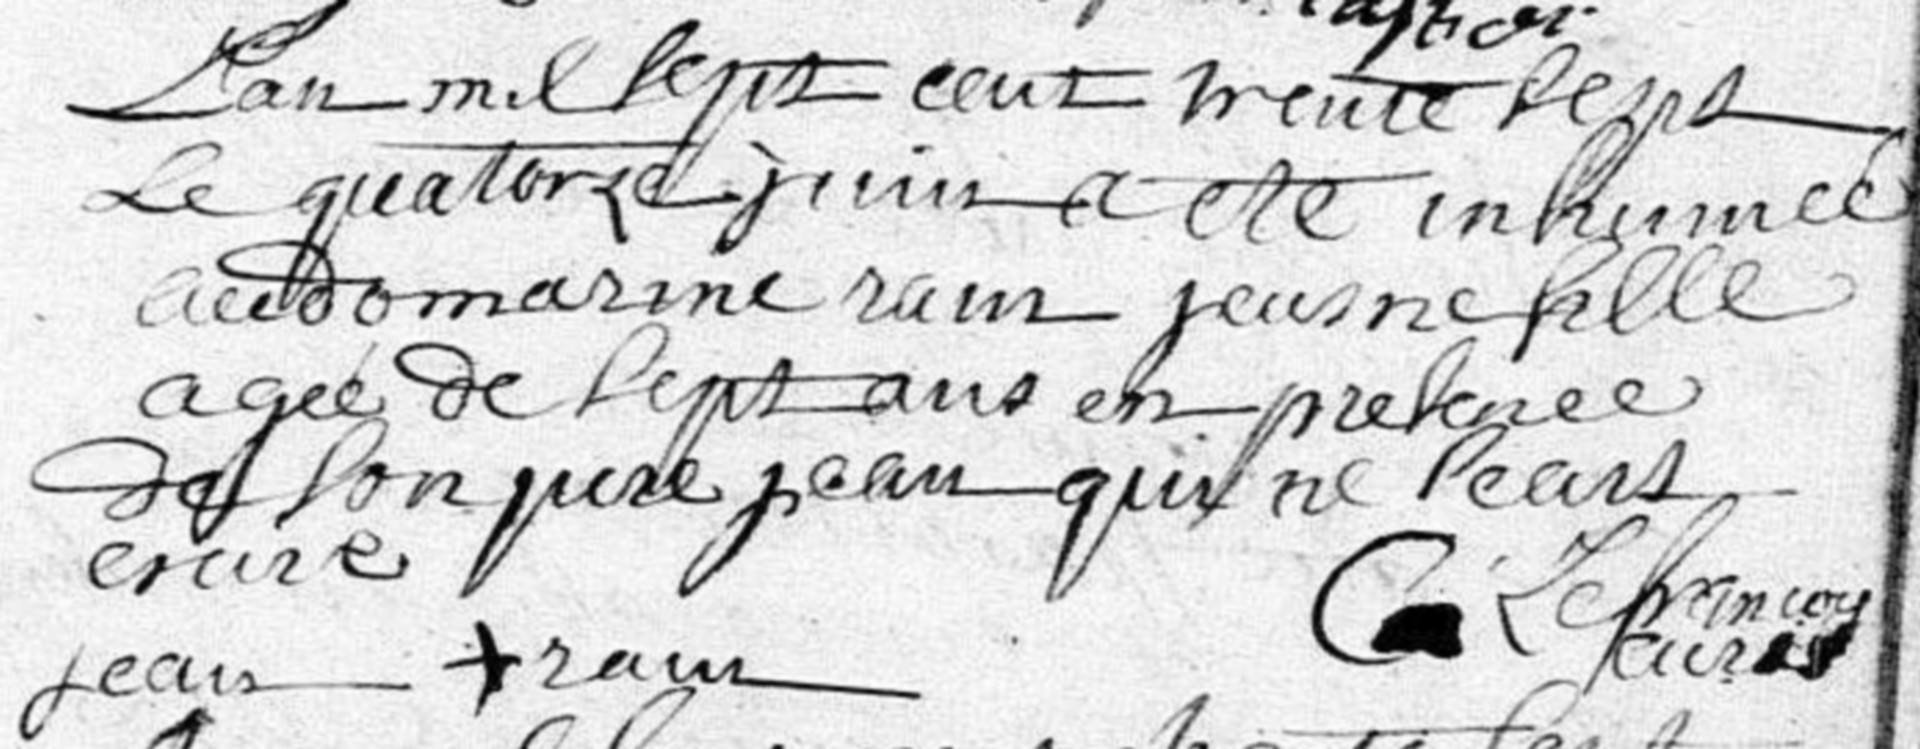 L'an mil sept cent trente sept
Le quatorze juin a ete inhumée
audomarine raux jeusne fille
agée de sept ans en presence
de son pere jean qui ne scait
ecrire
Lefrancois
jean + raux curé